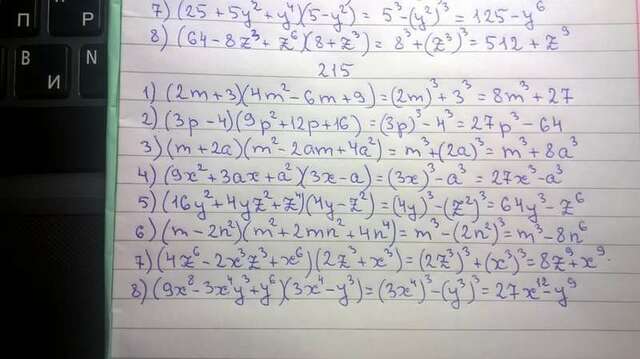 П
Р
В
И
N
7) (25 + 5y² + y⁴)(5 - y²) = 5³ - (y²)³ = 125 - y⁶
8) (64 - 8z³ + z⁶)(8 + z³) = 8³ + (z³)³ = 512 + z⁹
215
1) (2m + 3)(4m² - 6m + 9) = (2m)³ + 3³ = 8m³ + 27
2) (3p - 4)(9p² + 12p + 16) = (3p)³ - 4³ = 27p³ - 64
3) (m + 2a)(m² - 2am + 4a²) = m³ + (2a)³ = m³ + 8a³
4) (9x² + 3ax + a²)(3x - a) = (3x)³ - a³ = 27x³ - a³
5) (16y² + 4yz² + z⁴)(4y - z²) = (4y)³ - (z²)³ = 64y³ - z⁶
6) (m - 2n²)(m² + 2mn² + 4n⁴) = m³ - (2n²)³ = m³ - 8n⁶
7) (4z⁶ - 2x³z³ + x⁶)(2z³ + x³) = (2z³)³ + (x³)³ = 8z⁹ + x⁹.
8) (9x⁸ - 3x⁴y³ + y⁶)(3x⁴ - y³) = (3x⁴)³ - (y³)³ = 27x¹² - y⁹